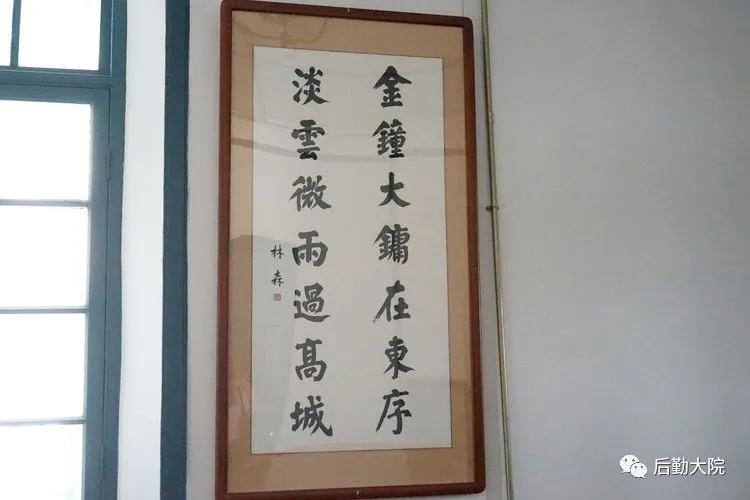 金鐘大鏞在東序
淡雲微雨過高城
林森
后勤大院